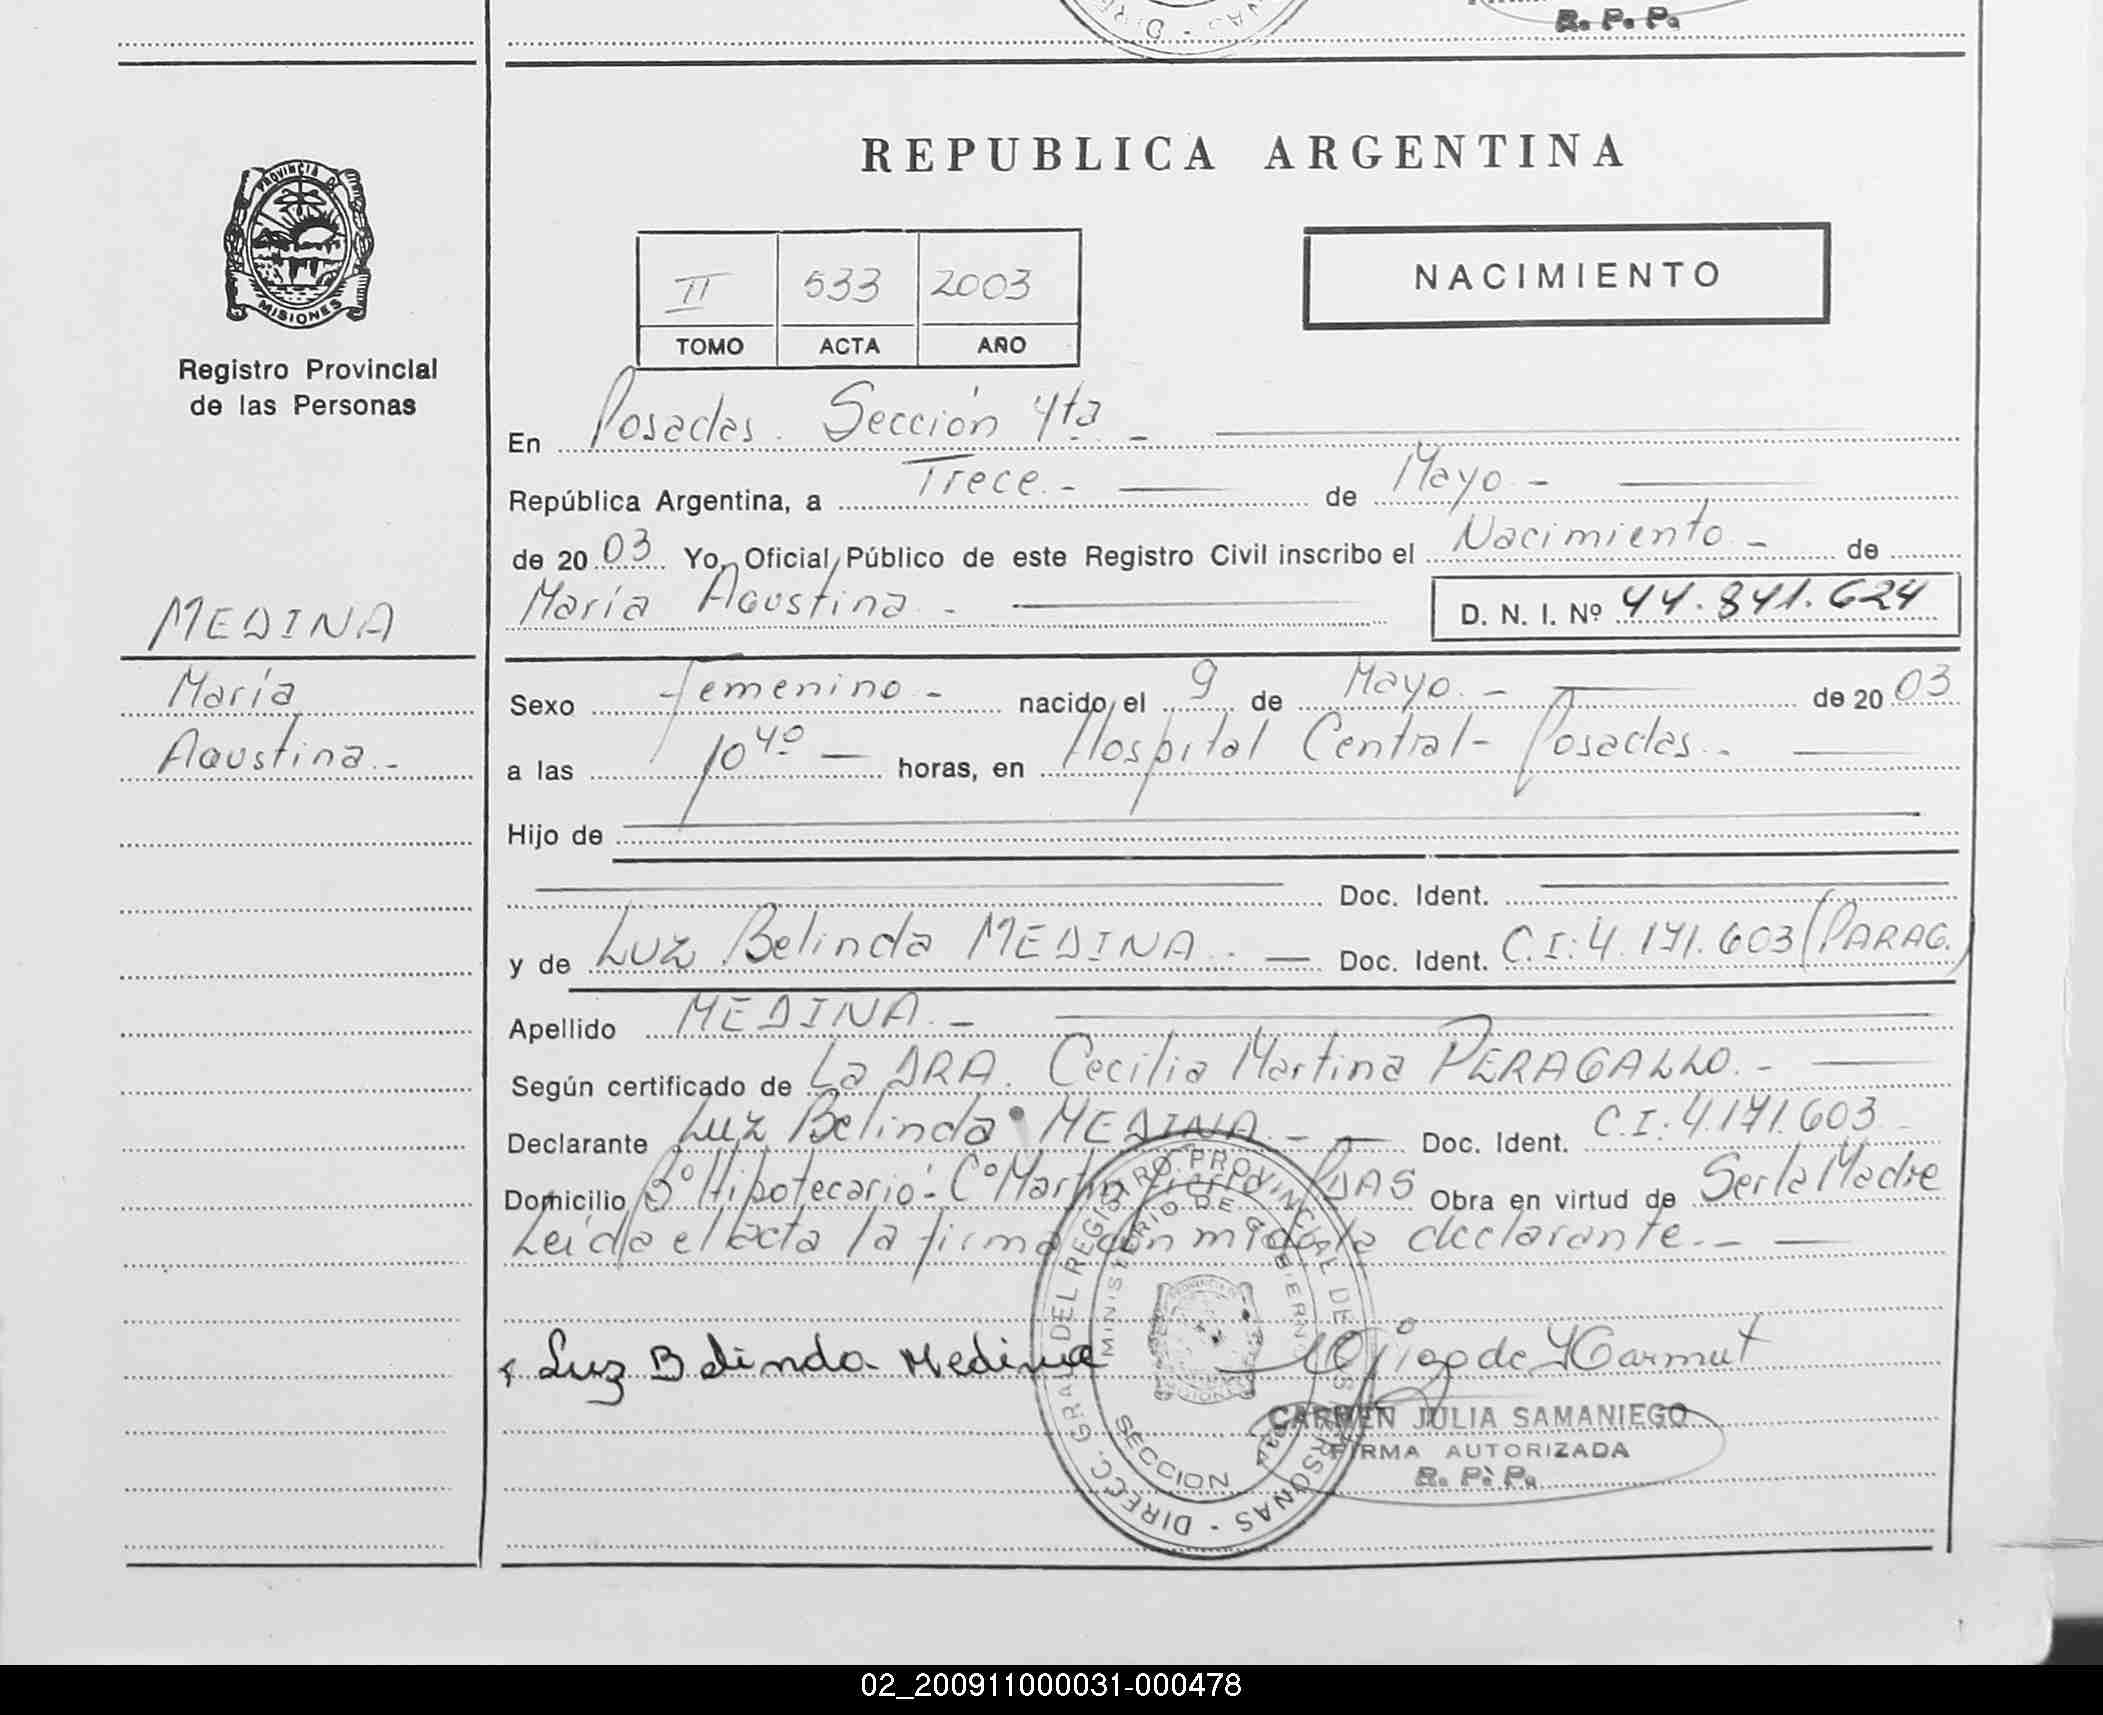 R. P. P.
REPUBLICA ARGENTINA
PROVINCIA DE
MISIONES
Registro Provincial
de las Personas
II 533 2003
TOMO ACTA AÑO
NACIMIENTO
En Posadas. Sección 4ta -
República Argentina, a Trece.- de Mayo -
de 20 03 Yo, Oficial Público de este Registro Civil inscribo el Nacimiento - de
María Agustina. - D. N. I. Nº 44.841.624
MEDINA
María
Agustina.-
Sexo femenino - nacido el 9 de Mayo. - de 20 03
a las 10 40 — horas, en Hospital Central - Posadas.-
Hijo de
Doc. Ident.
y de Luz Belinda MEDINA. - Doc. Ident. C.I: 4.171.603 (PARAG.)
Apellido MEDINA. -
Según certificado de La DRA. Cecilia Martina PERAGALLO. -
Declarante Luz Belinda MEDINA. - Doc. Ident. C.I: 4.171.603
Domicilio Bº Hipotecario: Cº Martín Fierro PDAS Obra en virtud de Ser la Madre
Leída el acta la firma con migo la declarante.-
Luz Belinda Medina
CARMEN JULIA SAMANIEGO
FIRMA AUTORIZADA
R. P. P.
DIRECC. GRAL DEL REGISTRO PROVINCIAL DE LAS PERSONAS -
MINISTERIO DE GOBIERNO
SECCION
02_200911000031-000478